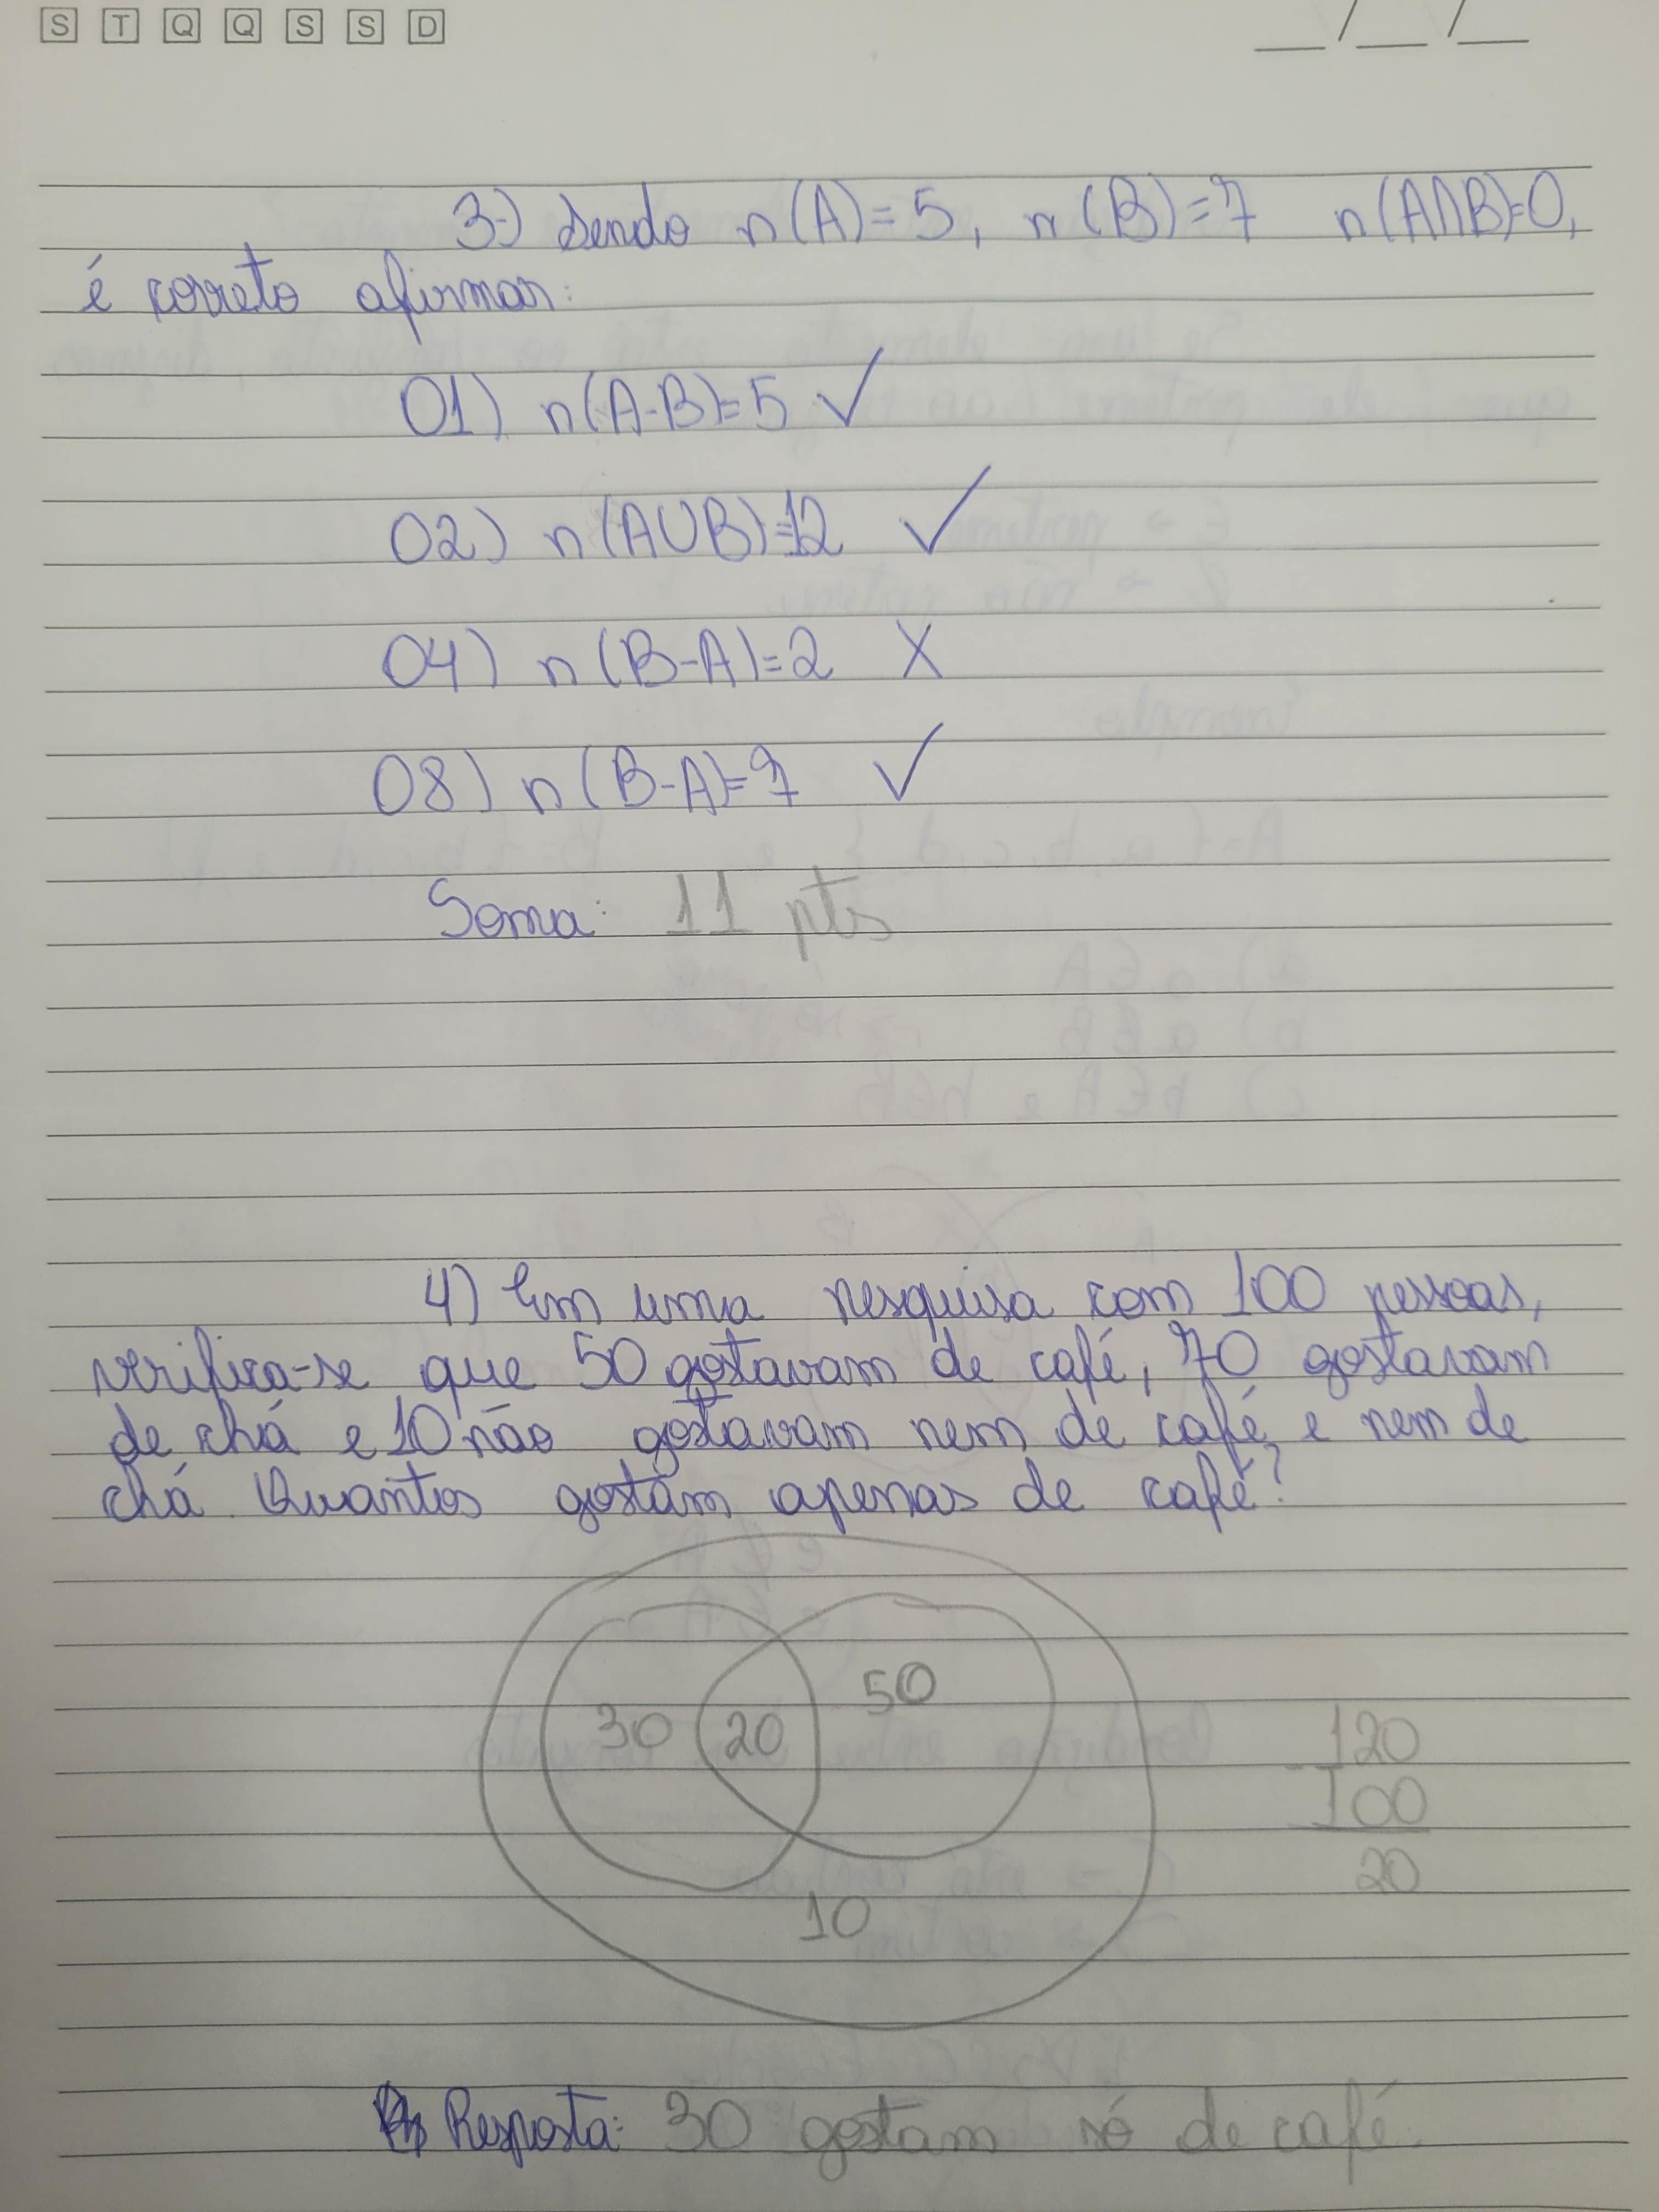 S T Q Q S S D __/__/__
3-) Sendo n(A)=5, n(B)=7 n(A∩B)=0,
é correto afirmar:
01) n(A-B)=5 ✓
02) n(A∪B)=12 ✓
04) n(B-A)=2 X
08) n(B-A)=7 ✓
Soma: 11 pts
4) Em uma pesquisa com 100 pessoas,
verifica-se que 50 gostavam de café, 70 gostavam
de chá e 10 não gostavam nem de café e nem de
chá. Quantos gostam apenas de café?
50
30 20
10
120
- 100
20
Resposta: 30 gostam só de café.